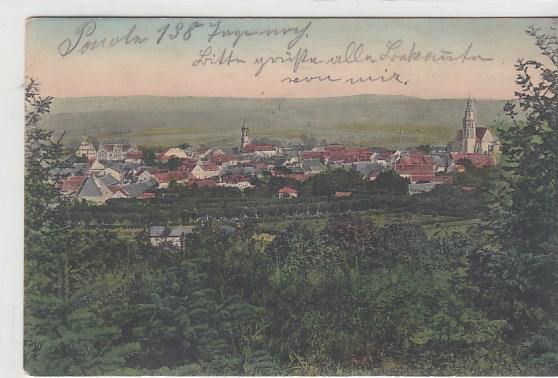 Parole 138 Tage noch.
Bitte grüße alle Bekannte
von mir.